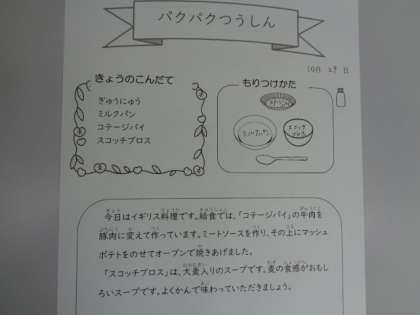 パクパクつうしん
10月 29日
きょうのこんだて
ぎゅうにゅう
ミルクパン
コテージパイ
スコッチブロス
もりつけかた
今日はイギリス料理です。給食では、「コテージパイ」の牛肉を
豚肉に変えて作っています。ミートソースを作り、その上にマッシュ
ポテトをのせてオーブンで焼きあげました。
「スコッチブロス」は、大麦入りのスープです。麦の食感がおもし
ろいスープです。よくかんで味わっていただきましょう。